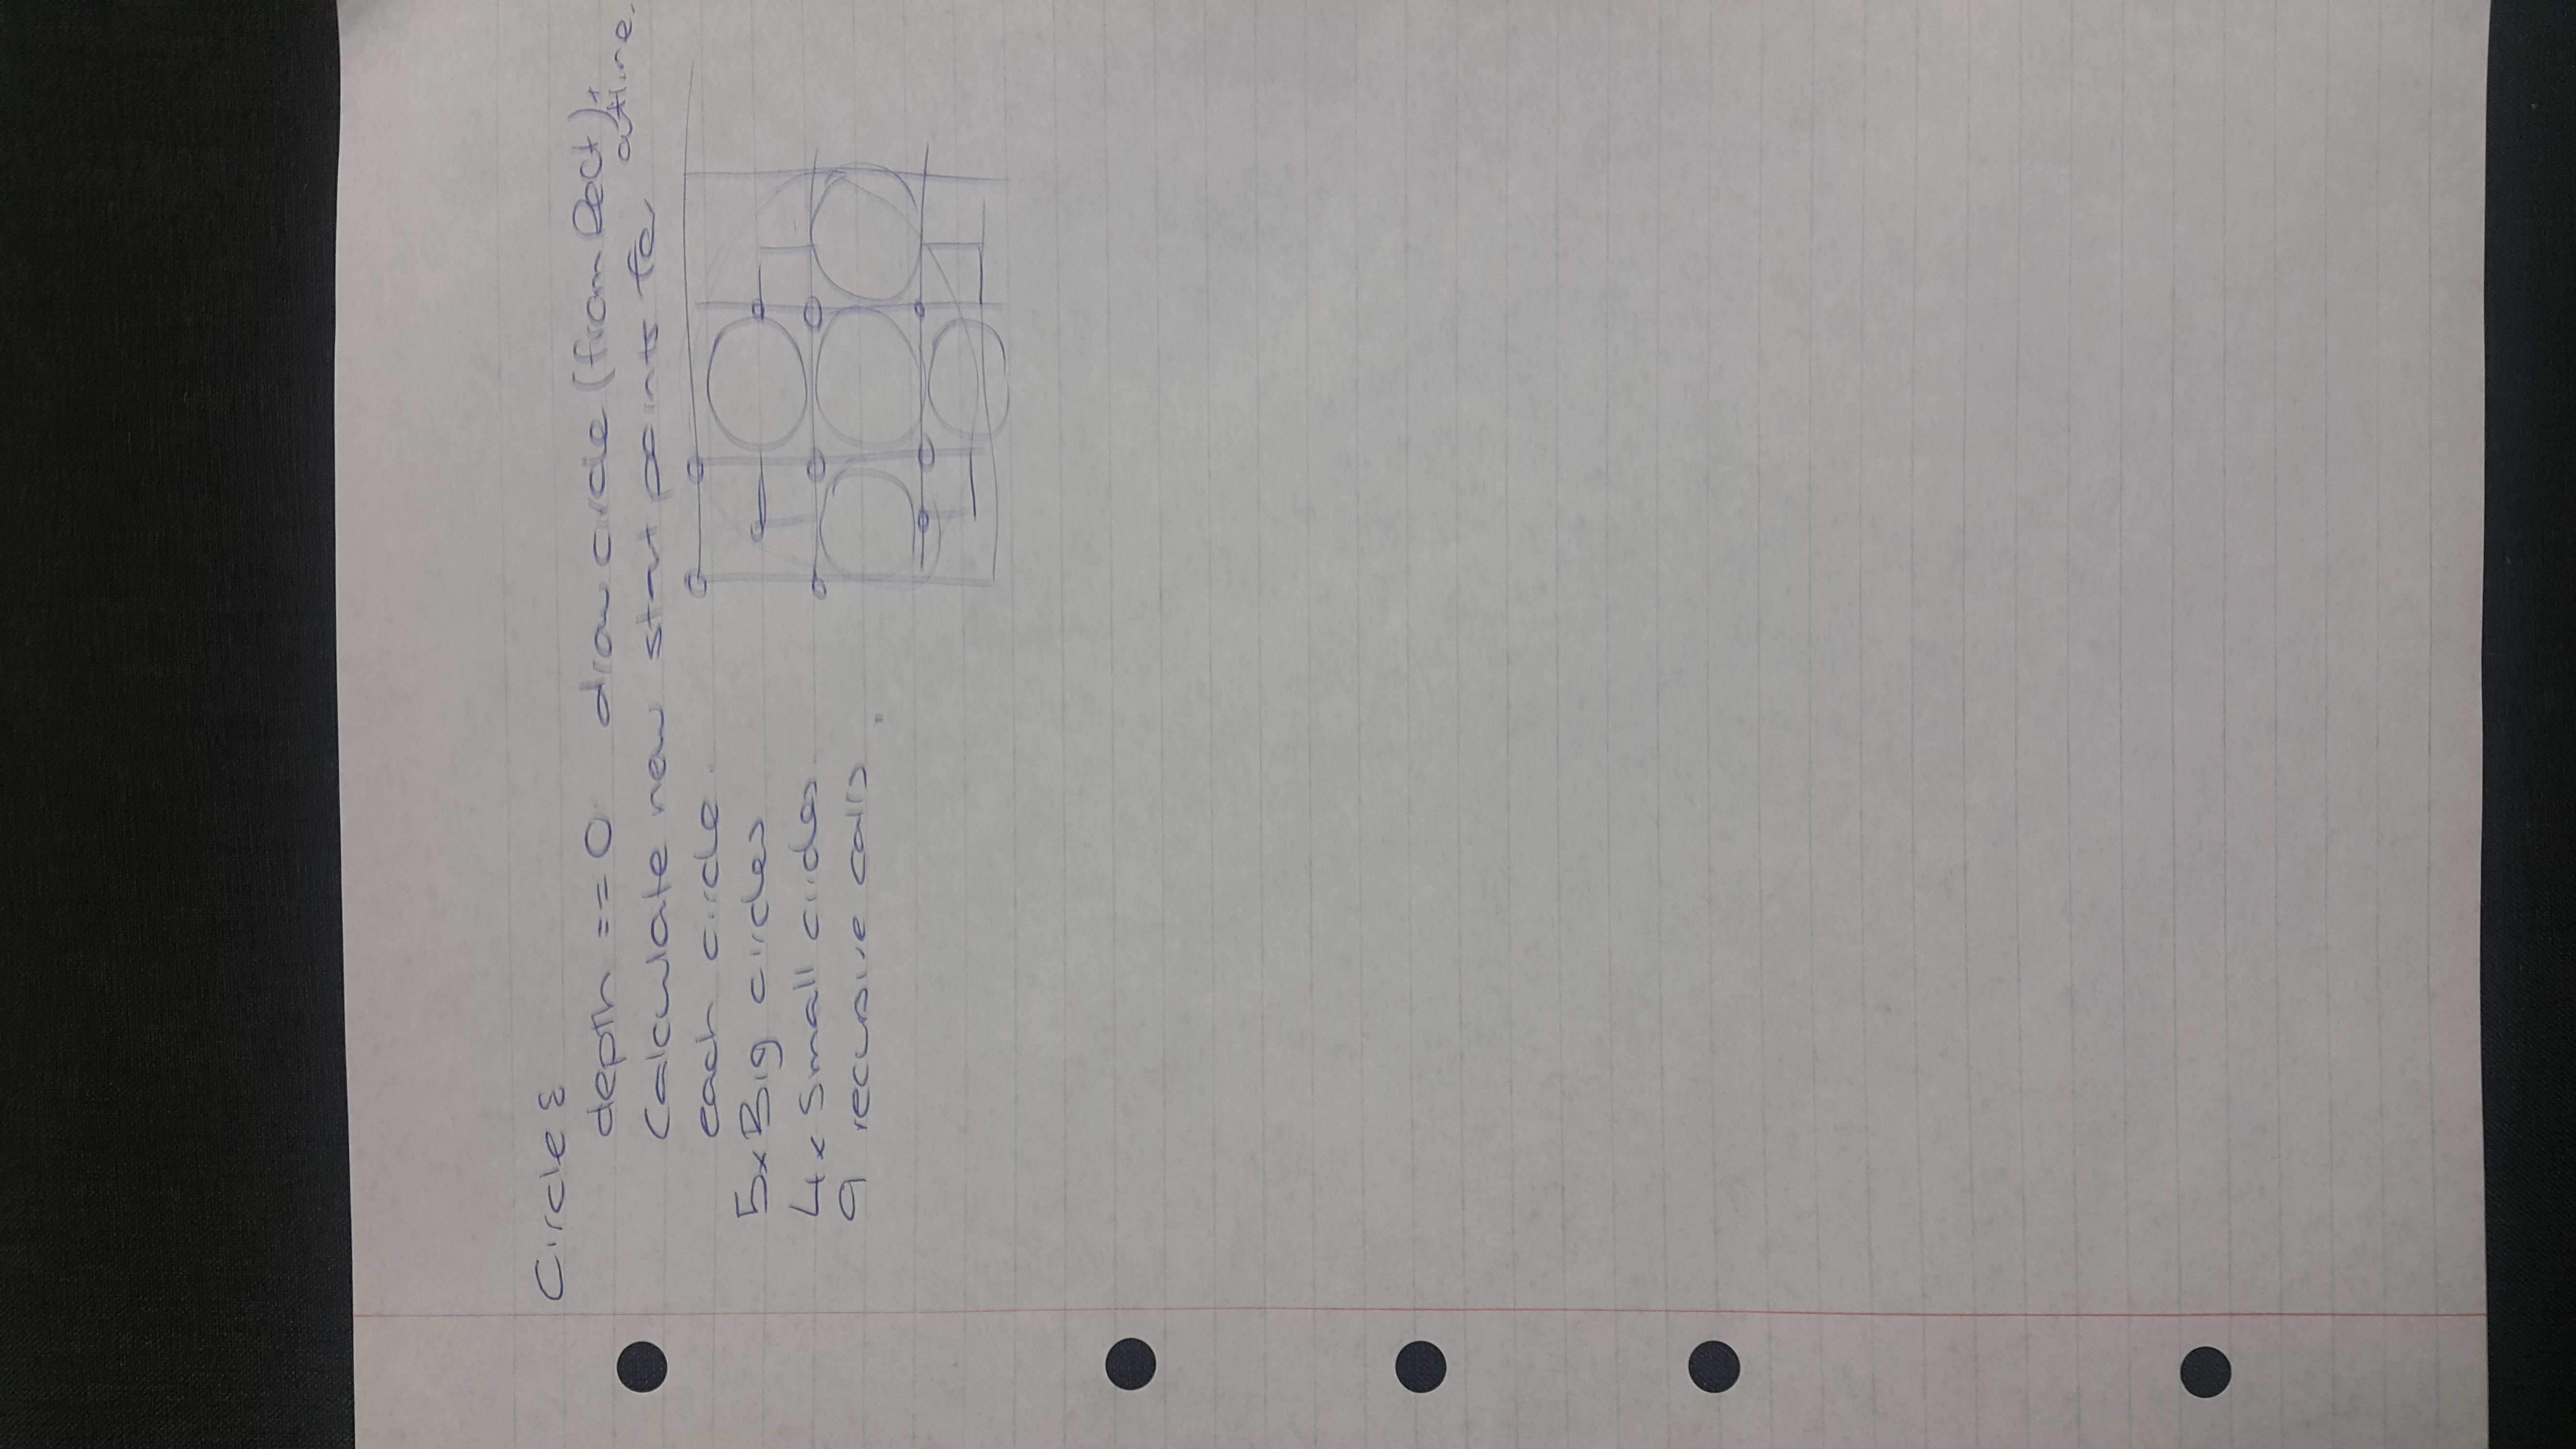 Circle {
depth == 0 draw circle (from Rect) + outline.
Calculate new start points for
each circle.
5x Big circles
4x Small circles
9 recursive calls.